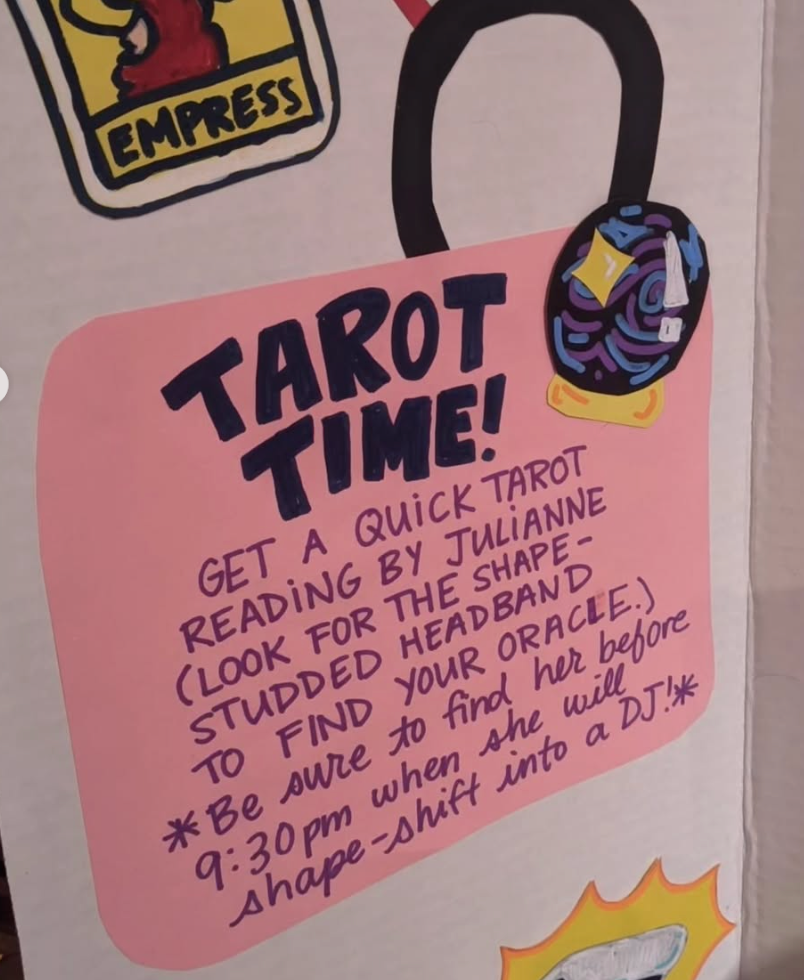 EMPRESS
TAROT
TIME!
GET A QUICK TAROT
READING BY JULIANNE
(LOOK FOR THE SHAPE-
STUDDED HEADBAND
TO FIND YOUR ORACLE.)
*Be sure to find her before
9:30pm when she will
shape-shift into a DJ!*